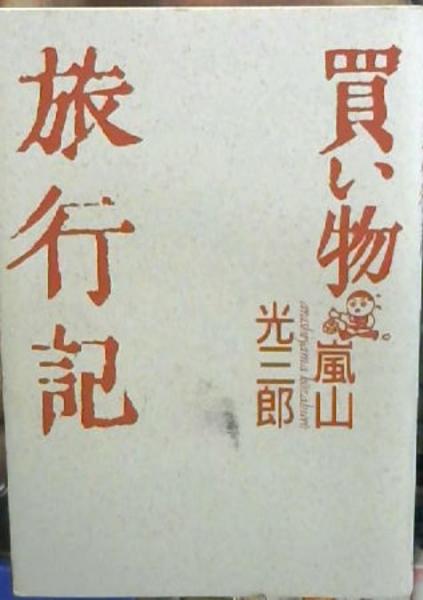 買い物
旅行記
嵐山
光三郎